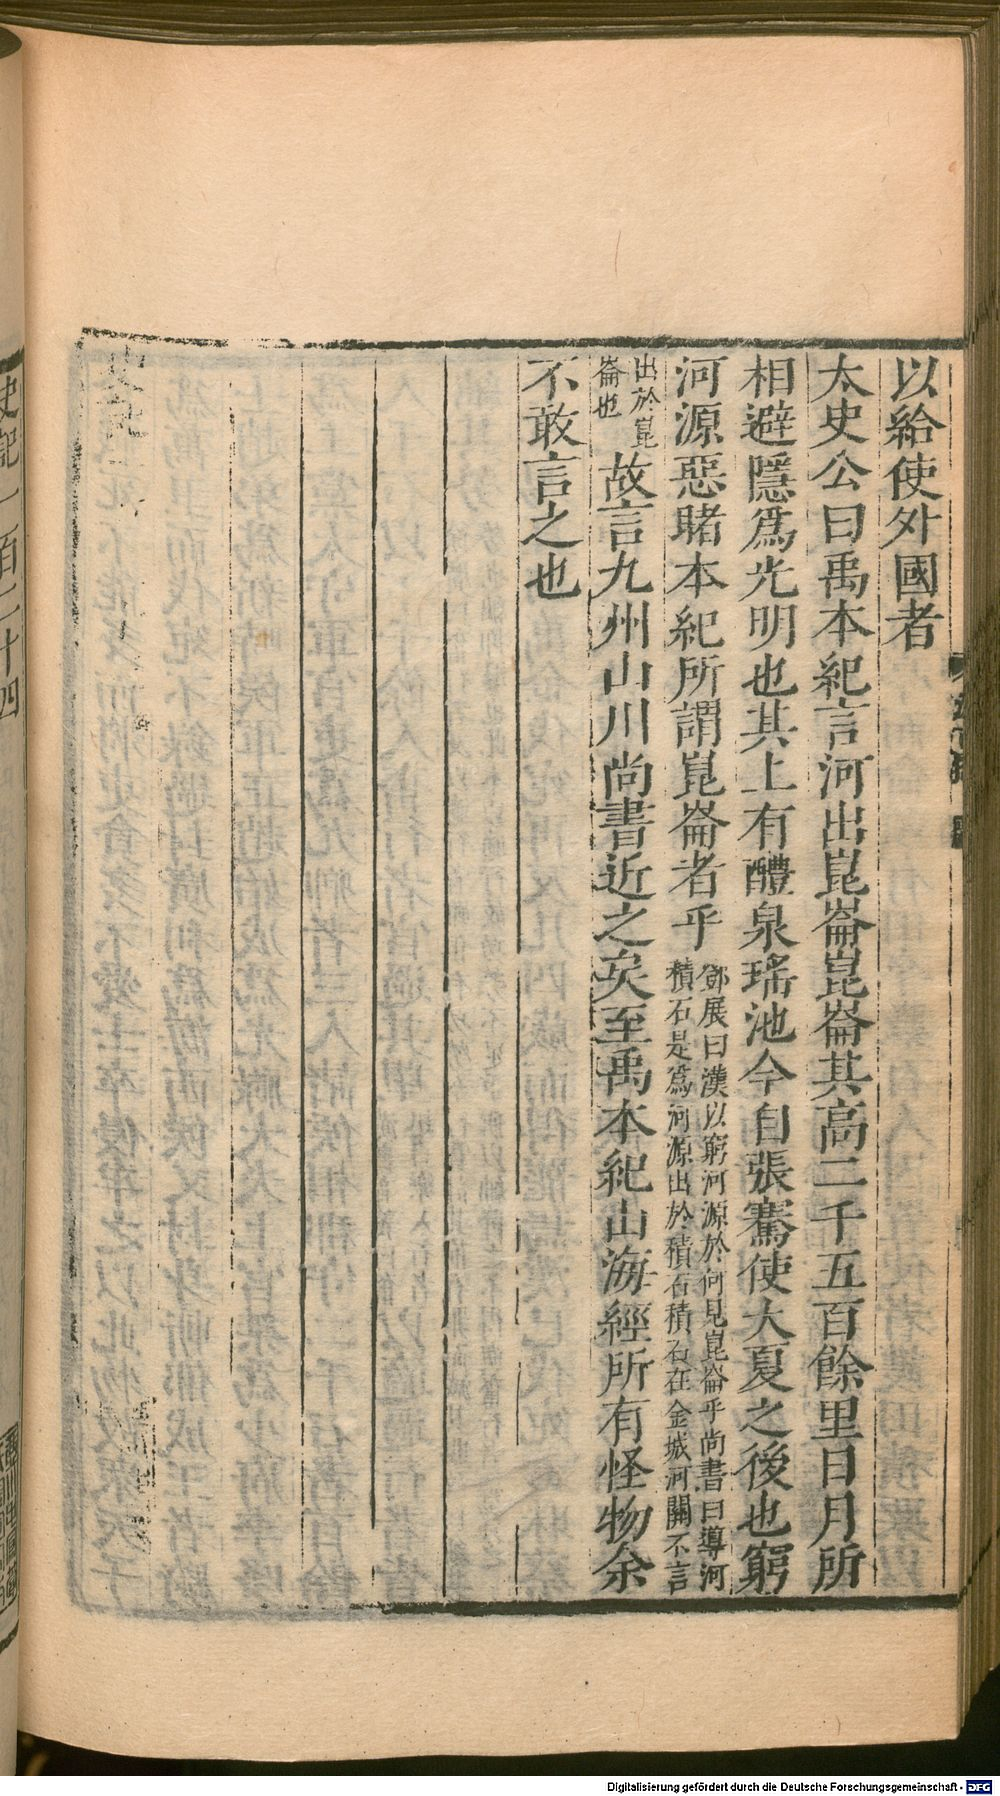 以給使外國者
太史公曰禹本紀言河出崑崙崑崙其高二千五百餘里日月所
相避隱爲光明也其上有醴泉瑤池今自張騫使大夏之後也窮
河源惡睹本紀所謂崑崙者乎
鄧展曰漢以窮河源於何見崑崙乎尚書曰導河
積石是爲河源出於積石積石在金城河關不言
出於崑
崙也
故言九州山川尚書近之矣至禹本紀山海經所有怪物余
不敢言之也
史記一百二十四
Digitalisierung gefördert durch die Deutsche Forschungsgemeinschaft - DFG